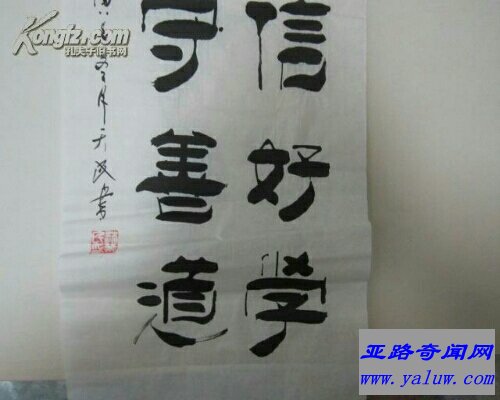 信好学
守善道
冬月天成书
Kongfz.com
孔夫子旧书网
亚路奇闻网
www.yaluw.com